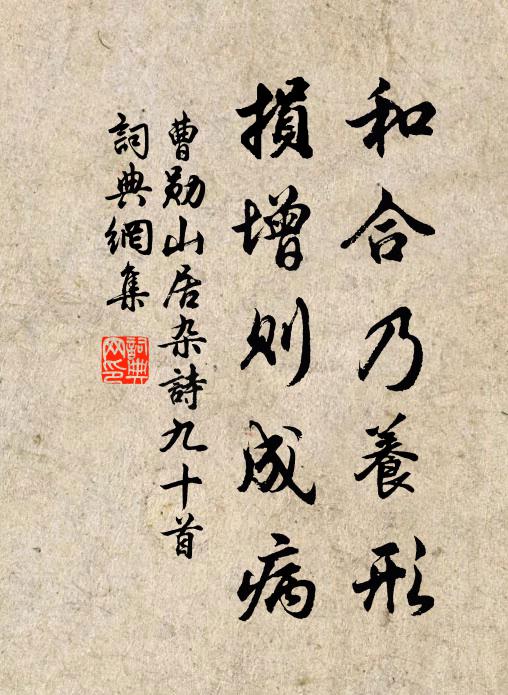 和合乃養形
損增則成病
曹勛山居杂詩九十首
詞典網集
詞典網印